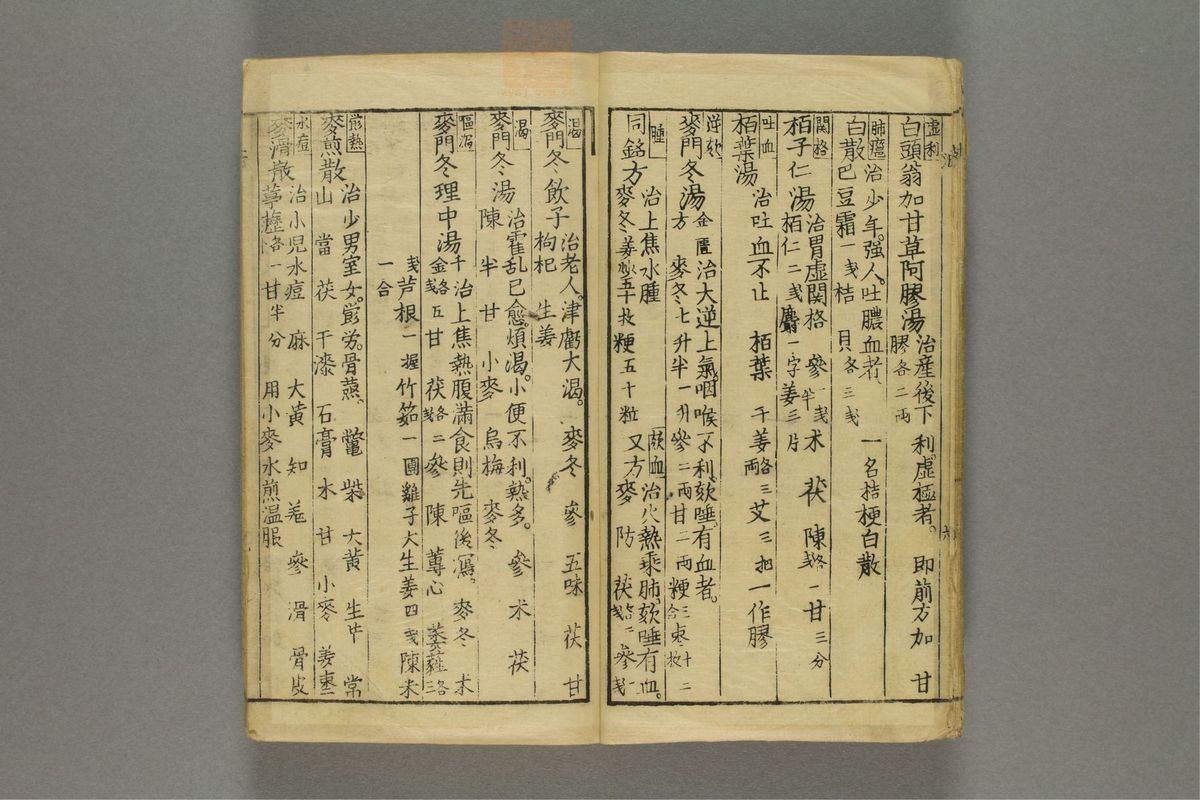 虚利
白頭翁加甘草阿膠湯 治産後下利。虚極者。 即前方加 甘
膠各二両
肺癰 治少年。強人。吐膿血者、
白散 巴豆霜一戔 桔 貝各三戔 一名桔梗白散
関格
栢子仁湯 治胃虚関格 參一戔半 术 茯 陳各一戔 甘三分
栢仁二戔 麝一字 姜三片
吐血
栢葉湯 治吐血不止 栢葉 干姜各三両 艾三把 一作膠
逆欬
麥門冬湯 金匱 治大逆上氣。咽喉不利。欬唾。有血者。
方 麥冬七升 半一升 參二両 甘二両 粳三合 棗十二枚
腫 治上焦水腫 欬血 治火熱乘肺、欬唾有血。
同銘方 麥冬姜炒五十枚 粳五十粒 又方 麥 防 茯 參
渇
麥門冬飲子 治老人。津虧大渇。 麥冬 參 五味 茯 甘
枸杞 生姜
渇 治霍乱已愈。煩渇。小便不利。熱多。 參 术 茯
麥門冬湯 陳 半 甘 小麥 烏梅 麥冬
嘔瀉
麥門冬理中湯 千金 治上焦熱腹滿食則先嘔後瀉。 麥冬 术
各五戔 甘 茯各二戔 參 陳 蓴心
戔 芦根一握 竹筎一團 雞子大 生姜四戔 陳米
一合
麥煎散 治少男室女。骨蒸、 鼈 柴 大黄 生 常
山 當 茯 干漆 石膏 木 甘 小麥 姜棗
水痘 治小児水痘 麻 大黄 知 羗 參 滑 骨皮
麥湯散 葶藶各一 甘半分 用小麥水煎温服